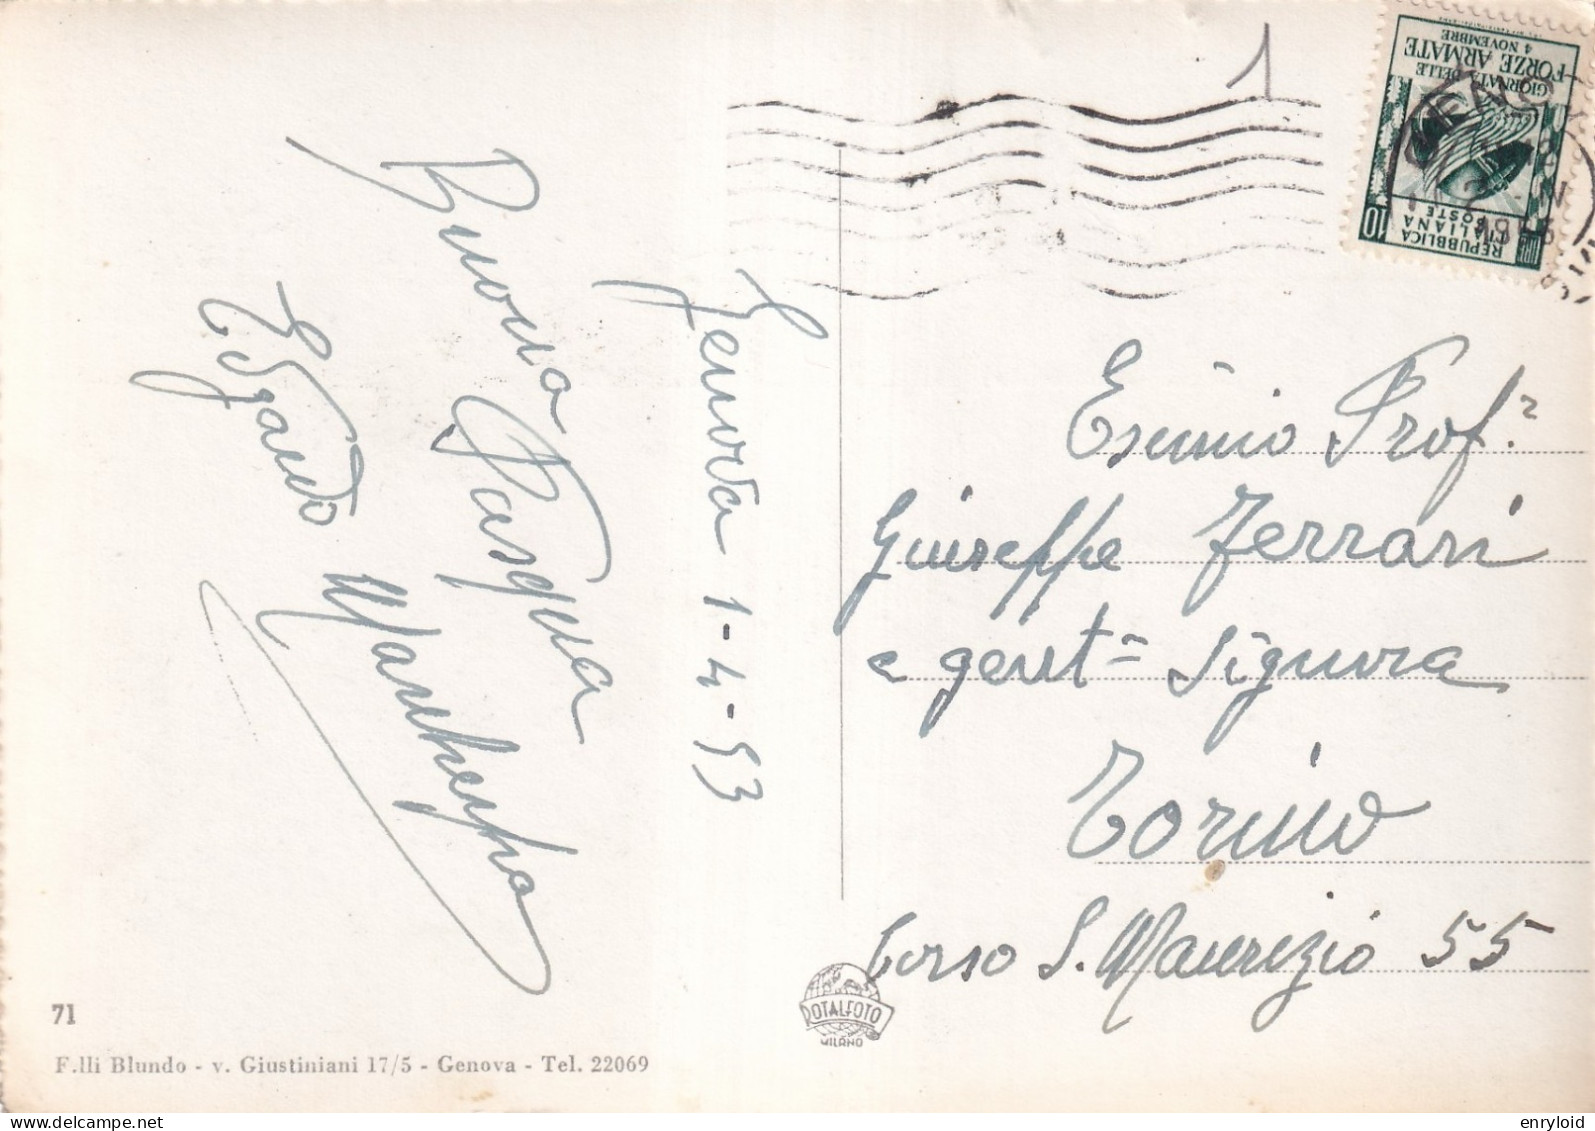 1
GIORNATA DELLE
FORZE ARMATE
4 NOVEMBRE
10
REPUBBLICA
ITALIANA
POSTE
Genova 1-4-53
Buona Pasqua
Edgardo
Esimio Prof.
Giuseppe Ferrari
e gent= Signora
Torino
Corso S. Maurizio 55
ROTALFOTO
MILANO
71
F.lli Blundo - v. Giustiniani 17/5 - Genova - Tel. 22069
enryloid